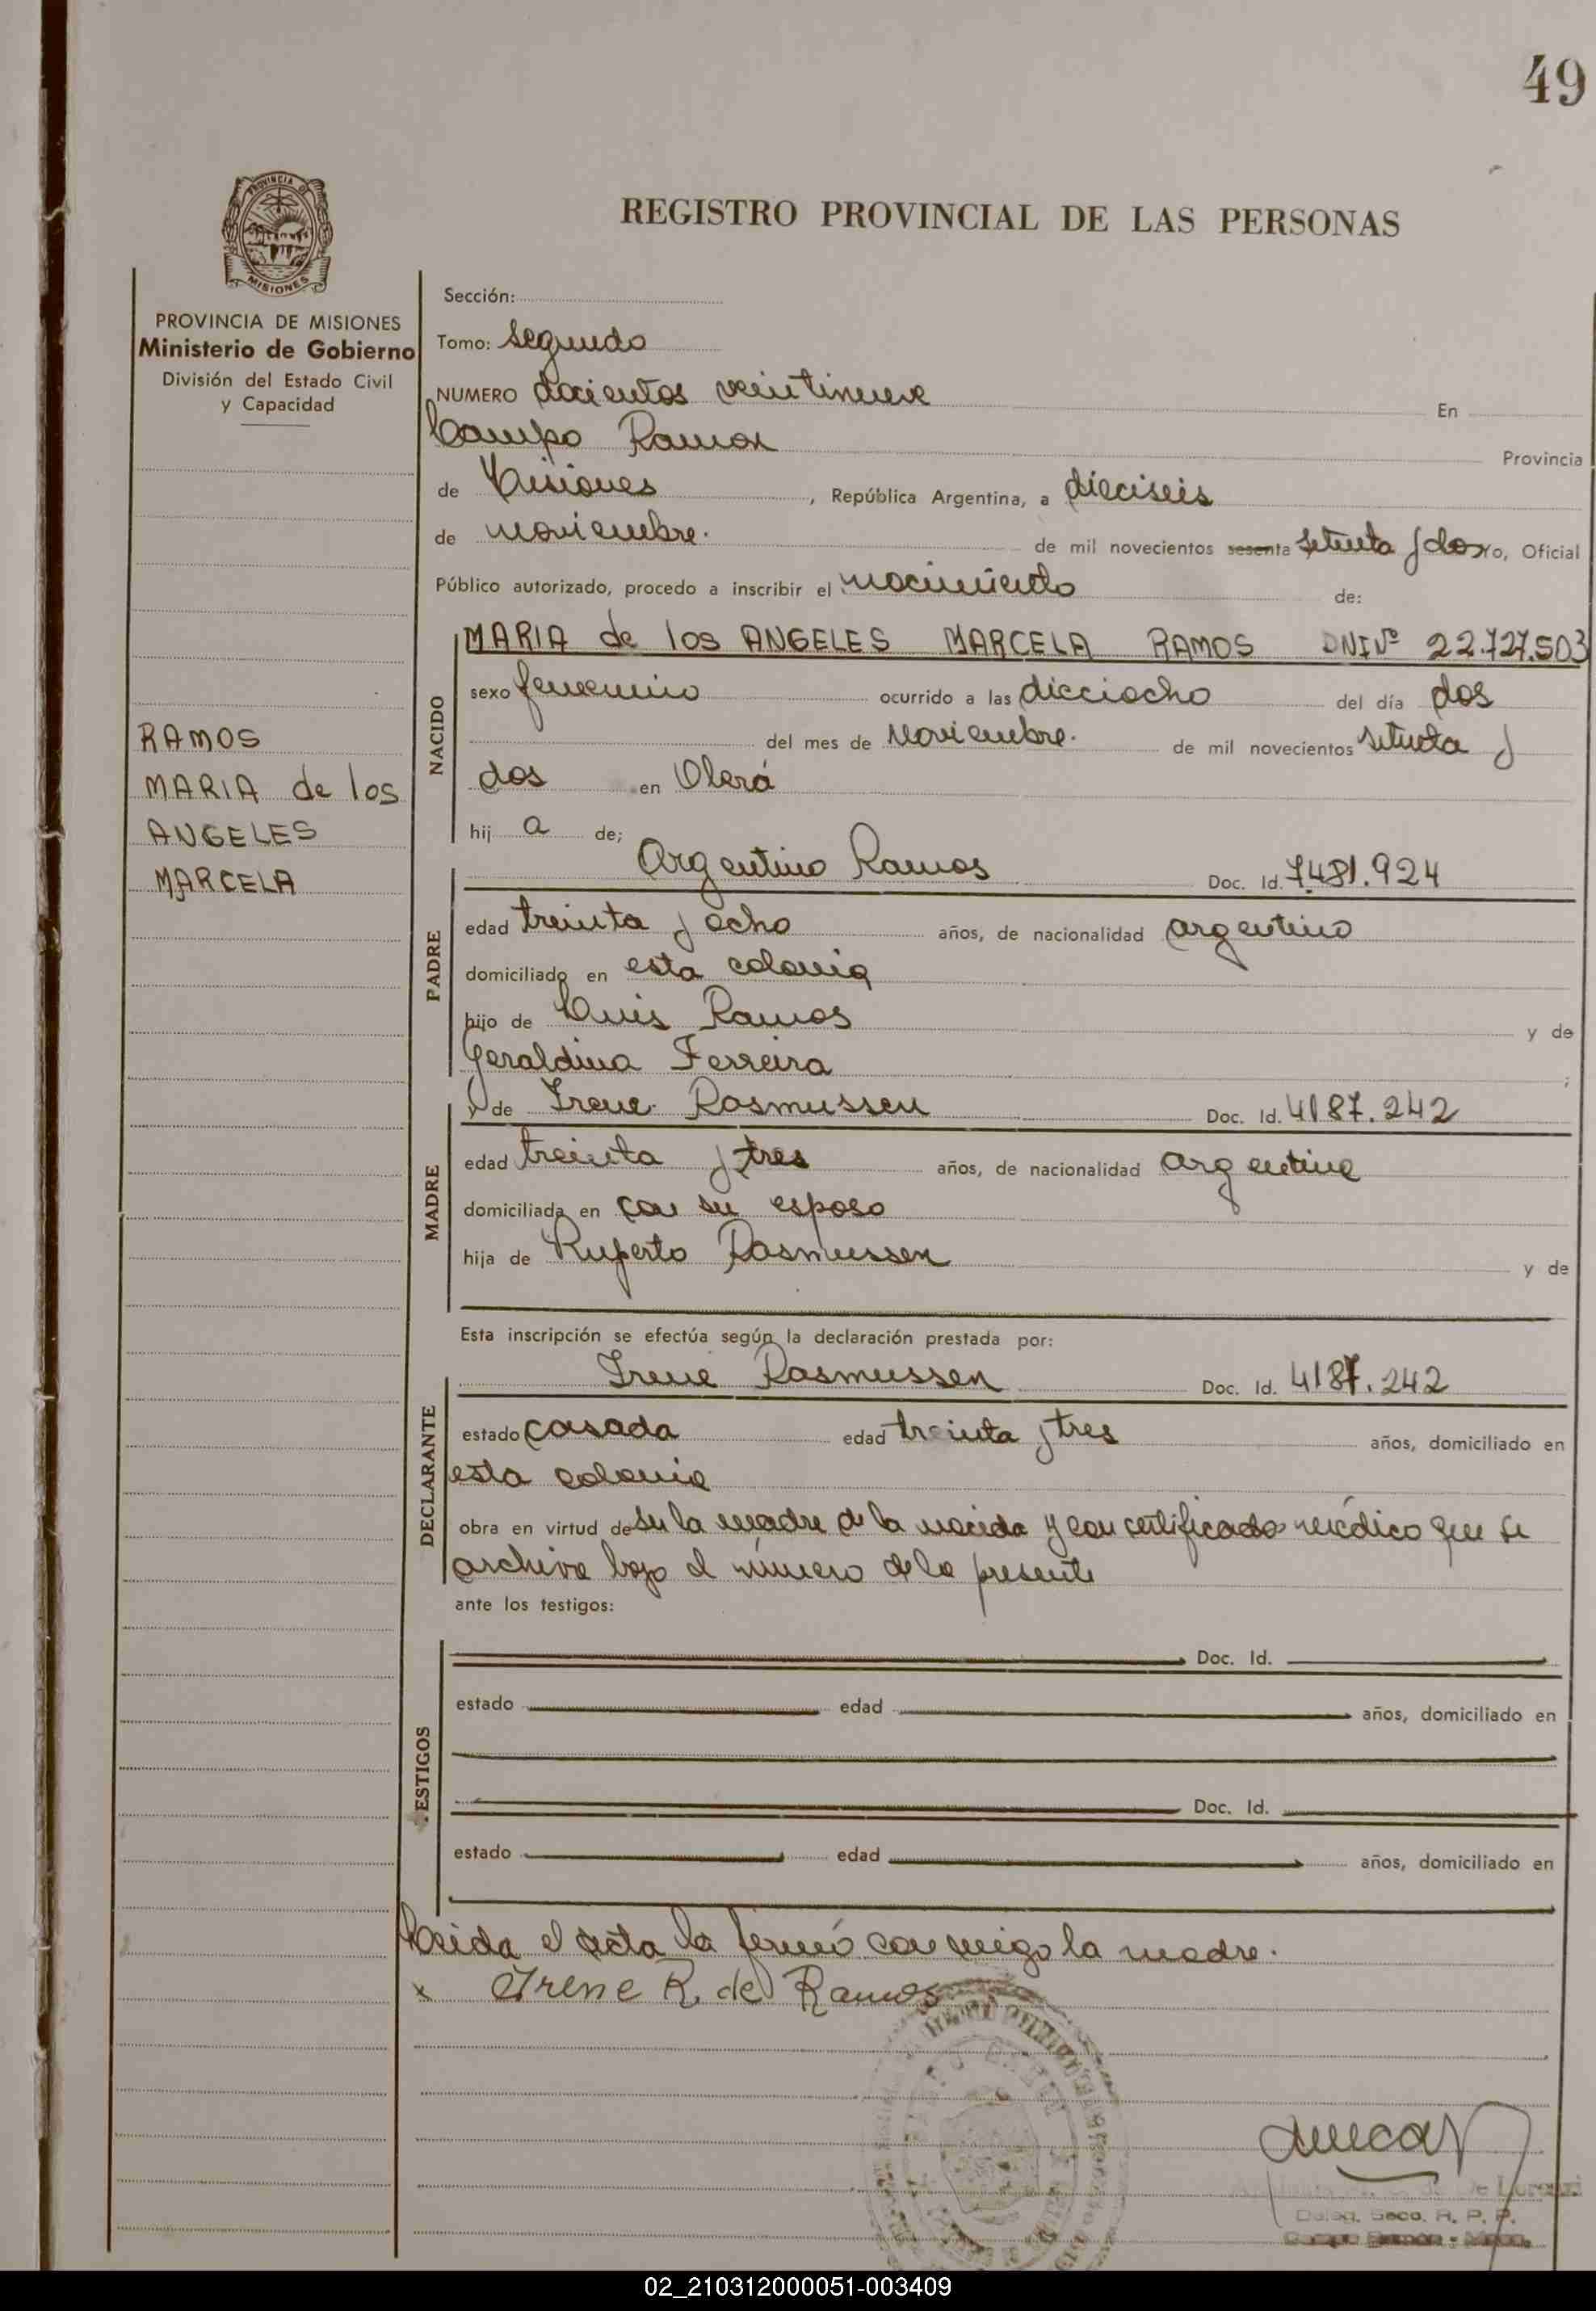 49
PROVINCIA DE
MISIONES
REGISTRO PROVINCIAL DE LAS PERSONAS
PROVINCIA DE MISIONES
Ministerio de Gobierno
División del Estado Civil
y Capacidad
RAMOS
MARIA de los
ANGELES
MARCELA
Sección:
Tomo: Segundo
NUMERO docientos veintinueve En
Campo Ramon Provincia
de Misiones, República Argentina, a dieciseis
de noviembre. de mil novecientos sesenta setenta y dos yo, Oficial
Público autorizado, procedo a inscribir el nacimiento de:
NACIDO
MARIA de los ANGELES MARCELA RAMOS DNI Nº 22.727.503
sexo femenino ocurrido a las dieciocho del día dos
del mes de Noviembre. de mil novecientos setenta y
dos en Oberá
hij a de;
PADRE
Argentino Ramos Doc. Id. 7.481.924
edad treinta y ocho años, de nacionalidad argentino
domiciliado en esta colonia
hijo de Luis Ramos y de
Geraldina Ferreira ;
MADRE
y de Irene Rasmussen Doc. Id. 4187.242
edad treinta y tres años, de nacionalidad argentina
domiciliada en con su esposo
hija de Ruperto Rasmussen y de
Esta inscripción se efectúa según la declaración prestada por:
DECLARANTE
Irene Rasmussen Doc. Id. 4187.242
estado casada edad treinta y tres años, domiciliado en
esta colonia
obra en virtud de ser la madre de la nacida y con certificado médico que se
archiva bajo el número de la presente
ante los testigos:
ESTIGOS
Doc. Id.
estado edad años, domiciliado en
Doc. Id.
estado edad años, domiciliado en
Leida el acta la firmó conmigo la madre.
x Irene R. de Ramos
Deleg. Secc. R. P. P.
Campo Ramón - Mnes.
02_210312000051-003409